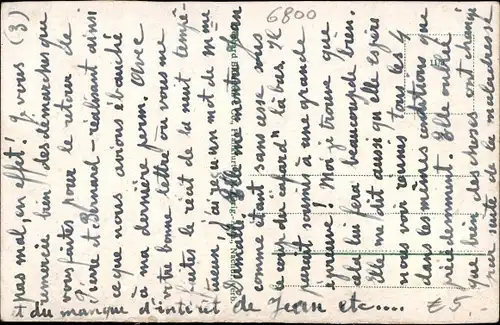 6800
pas mal, en effet! Je vous (3)
remercie bien des démarches que
vous faites pour le retour de
Pierre et Bernard - réalisant ainsi
ce que nous avions ébauché
à ma dernière perm. Avec
votre bonne lettre où vous me
faites le récit de la nuit tempé-
tueux, j'ai reçu un mot de Mme
Elle me montre Jean
comme étant sans cesse sous
le coup du "cafard" là-bas. Il
paraît soumis à une grande
épreuve! Moi je trouve que
cela lui fera beaucoup de bien.
Elle me dit aussi qu'elle espère
nous voir réunis tous les 4
dans les mêmes conditions que
précédemment. Elle oublie
que bien des choses ont changé
par suite de la maladresse
et du manque d'intérêt de Jean etc....
£5.-